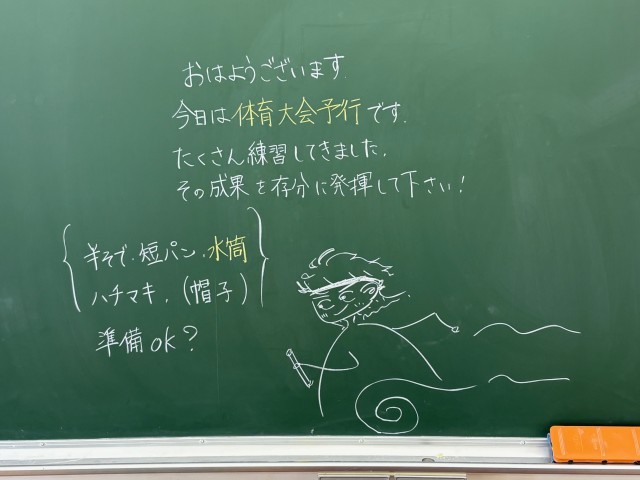 おはようございます.
今日は体育大会予行です.
たくさん練習してきました.
その成果を存分に発揮して下さい!
半そで.短パン.水筒
ハチマキ.(帽子)
準備ok?